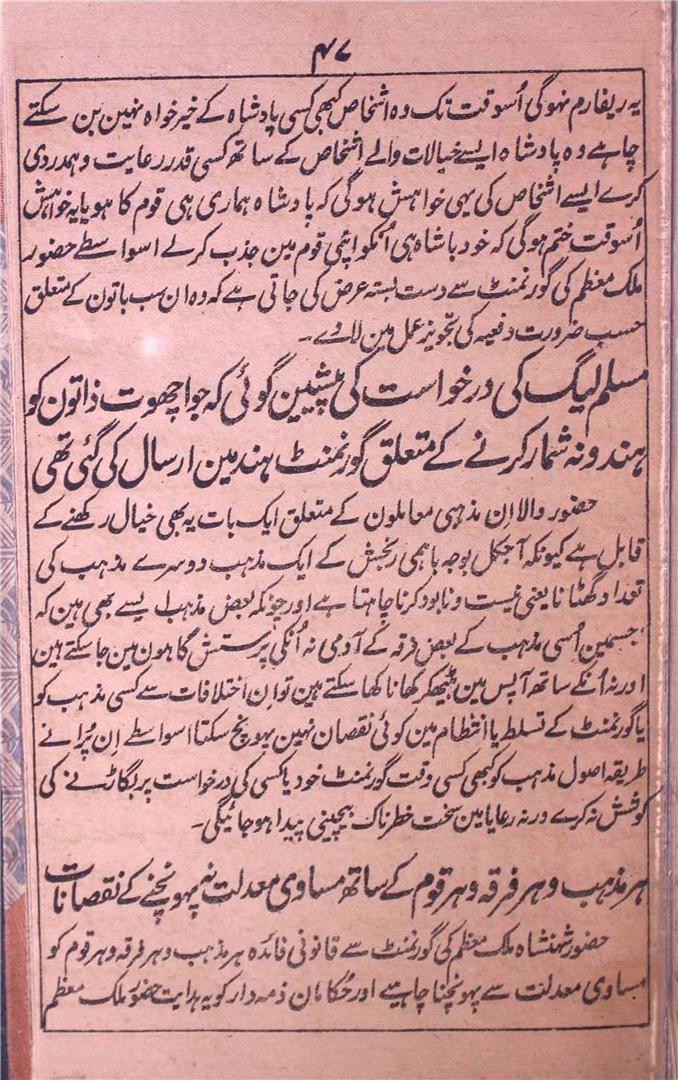 ۴۷
یہ ریفارم نہوگی اُسوقت تک وہ اشخاص کبھی کسی پادشاہ کے خیر خواہ نہین بن سکتے
چاہے وہ پادشاہ ایسے خیالات والے اشخاص کے ساتھ کسی قدر رعایت وہمدردی
کرے ایسے اشخاص کی یہی خواہش ہوگی کہ پادشاہ ہماری ہی قوم کا ہو یا یہ خواہش
اُسوقت ختم ہوگی کہ خود بادشاہ ہی اُنکو اپنی قوم مین جذب کرلے اسواسطے حضور
ملک معظم کی گورنمنٹ سے دست بستہ عرض کی جاتی ہے کہ وہ ان سب باتون کے متعلق
حسب ضرورت دفعیہ کی تجویز عمل مین لاوے۔
مسلم لیگ کی درخواست کی پیشین گوئی کہ جو اچھوت ذاتون کو
ہندو نہ شمار کرنے کے متعلق گورنمنٹ ہند مین ارسال کی گئی تھی
حضور والا اِن مذہبی معاملون کے متعلق ایک بات یہ بھی خیال رکھنے کے
قابل ہے کیونکہ آجکل بوجہ باہمی رنجش کے ایک مذہب دوسرے مذہب کی
تعداد گھٹانا یعنی نیست ونابود کرنا چاہتا ہے اور چونکہ بعض مذہب ایسے بھی ہین کہ
جسمین اُسی مذہب کے بعض فرقہ کے آدمی نہ اُنکی پرستش گاہون مین جاسکتے ہین
اور نہ اُنکے ساتھ آپس مین بیٹھکر کھانا کھا سکتے ہین تو اِن اختلافات سے کسی مذہب کو
یا گورنمنٹ کے تسلط یا انتظام مین کوئی نقصان نہین پہونچ سکتا اسواسطے اِن پُرانے
طریقہ اصول مذہب کو کبھی کسی وقت گورنمنٹ خود یا کسی کی درخواست پر بگاڑنے کی
کوشش نہ کرے ورنہ رعایا مین سخت خطرناک بیچینی پیدا ہوجائیگی۔
ہر مذہب وہر فرقہ وہر قوم کے ساتھ مساوی معدلت نہ پہونچنے کے نقصانات
حضور شہنشاہ ملک معظم کی گورنمنٹ سے قانونی فائدہ ہر مذہب وہر فرقہ وہر قوم کو
مساوی معدلت سے پہونچنا چاہیے اور حُکامان ذمہ دار کو یہ ہدایت حضور ملک معظم